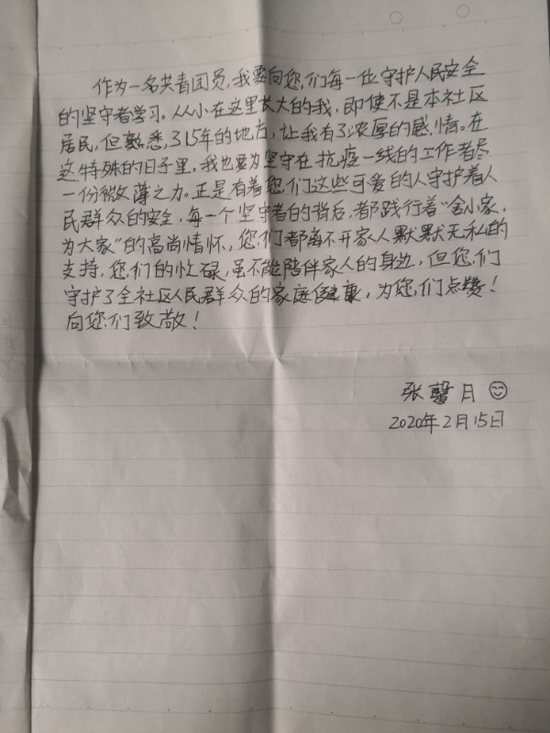 作为一名共青团员,我要向您们每一位守护人民安全
的坚守者学习。从小在这里长大的我,即使不是本社区
居民,但熟悉了15年的地方,让我有了浓厚的感情。在
这特殊的日子里,我也要为坚守在抗疫一线的工作者尽
一份微薄之力。正是有着您们这些可爱的人守护着人
民群众的安全,每一个坚守者的背后,都践行着“舍小家,
为大家”的高尚情怀,您们都离不开家人默默无私的
支持,您们的忙碌,虽不能陪伴家人的身边,但您们
守护了全社区人民群众的家庭健康,为您们点赞!
向您们致敬!
张馨月
2020年2月15日